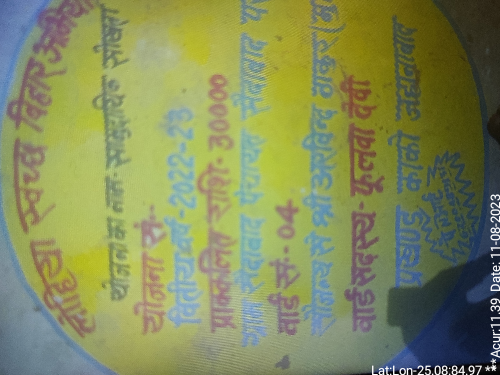 लोहिया स्वच्छ बिहार अभियान
योजना का नाम- सामुदायिक सोखता
योजना सं:-
वित्तीय वर्ष- 2022-23
प्राक्कलित राशि- 30000
ग्राम सैदाबाद पंचायत सैदाबाद
वार्ड सं:- 04
सौजन्य से श्री अरविन्द ठाकुर
वार्ड सदस्य- फूलवा देवी
प्रखण्ड काको जहानाबाद
Lat:Lon-25.08:84.97
**Acur:11.39 Date:11-08-2023